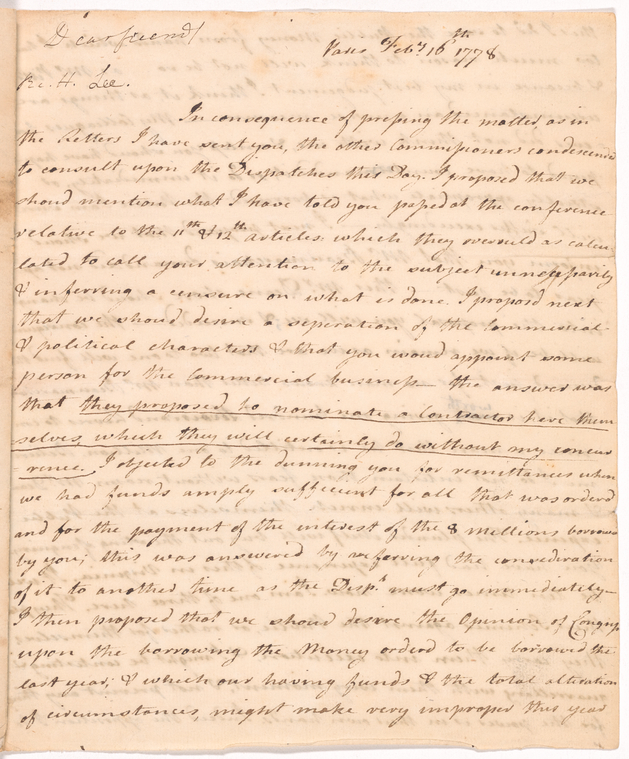 Dear friend/
Paris Feb.y 16th 1778
R. H. Lee.
In consequence of pressing the matter, as in
the Letters I have sent you, the other Commissioners condescend
to consult upon the Dispatches this Day. I proposed that we
shoud mention what I have told you passed at the conference
relative to the 11th & 12th articles. which they overruld as calcu
lated to call your attention to the subject unnecessarily
& inferring a censure on what is done. I proposed next
that we should desire a seperation of the Commercial
& political characters & that you woud appoint some
person for the Commercial business— the answer was
that they proposed to nominate a Contractor here them
selves, which they will certainly do without my concur
rence. I objected to the dunning you for remittances when
we had funds amply sufficient for all that was orderd
and for the payment of the interest of the 8 millions borrowd
by you; this was answered by referring the consideration
of it to another time as the Disp.s must go immediately—
I then proposed that we shoud desire the Opinion of Congress
upon the borrowing the Money orderd to be borrowed the
last year; & which our having funds & the total alteration
of circumstances, might make very improper this year